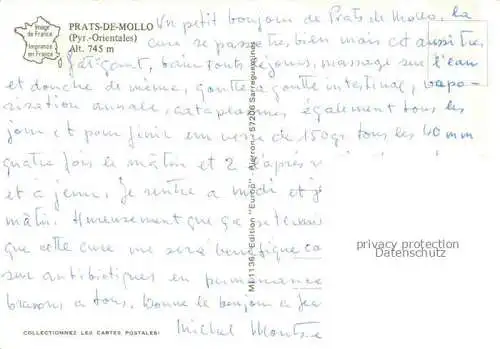 Image
de France
Imprimé
en France
PRATS-DE-MOLLO
(Pyr.-Orientales)
Alt. 745 m
Un petit bonjour de Prats de Mollo, la
cure se passe très bien mais c'est aussi très
fatigant, bains tous les jours, massage sur l'eau
et douche de même, goutte à goutte intestinal, vapo-
risation annale, cataplasmes également tous les
jours et pour finir un verre de 150 grs tous les 40 mm
quatre fois le mâtin et 2 d'après
et à jeun. Je rentre à midi et j
mâtin. Heureusement que ça se
que cette cure me sera bénéfique ca
sur antibiotiques en permanence
braxons à tous. Donne le bonjour à
Michel
MI 1136 - Edition "Europ" - Pierron - 57206 Sarreguemines
COLLECTIONNEZ LES CARTES POSTALES!
privacy protection
Datenschutz